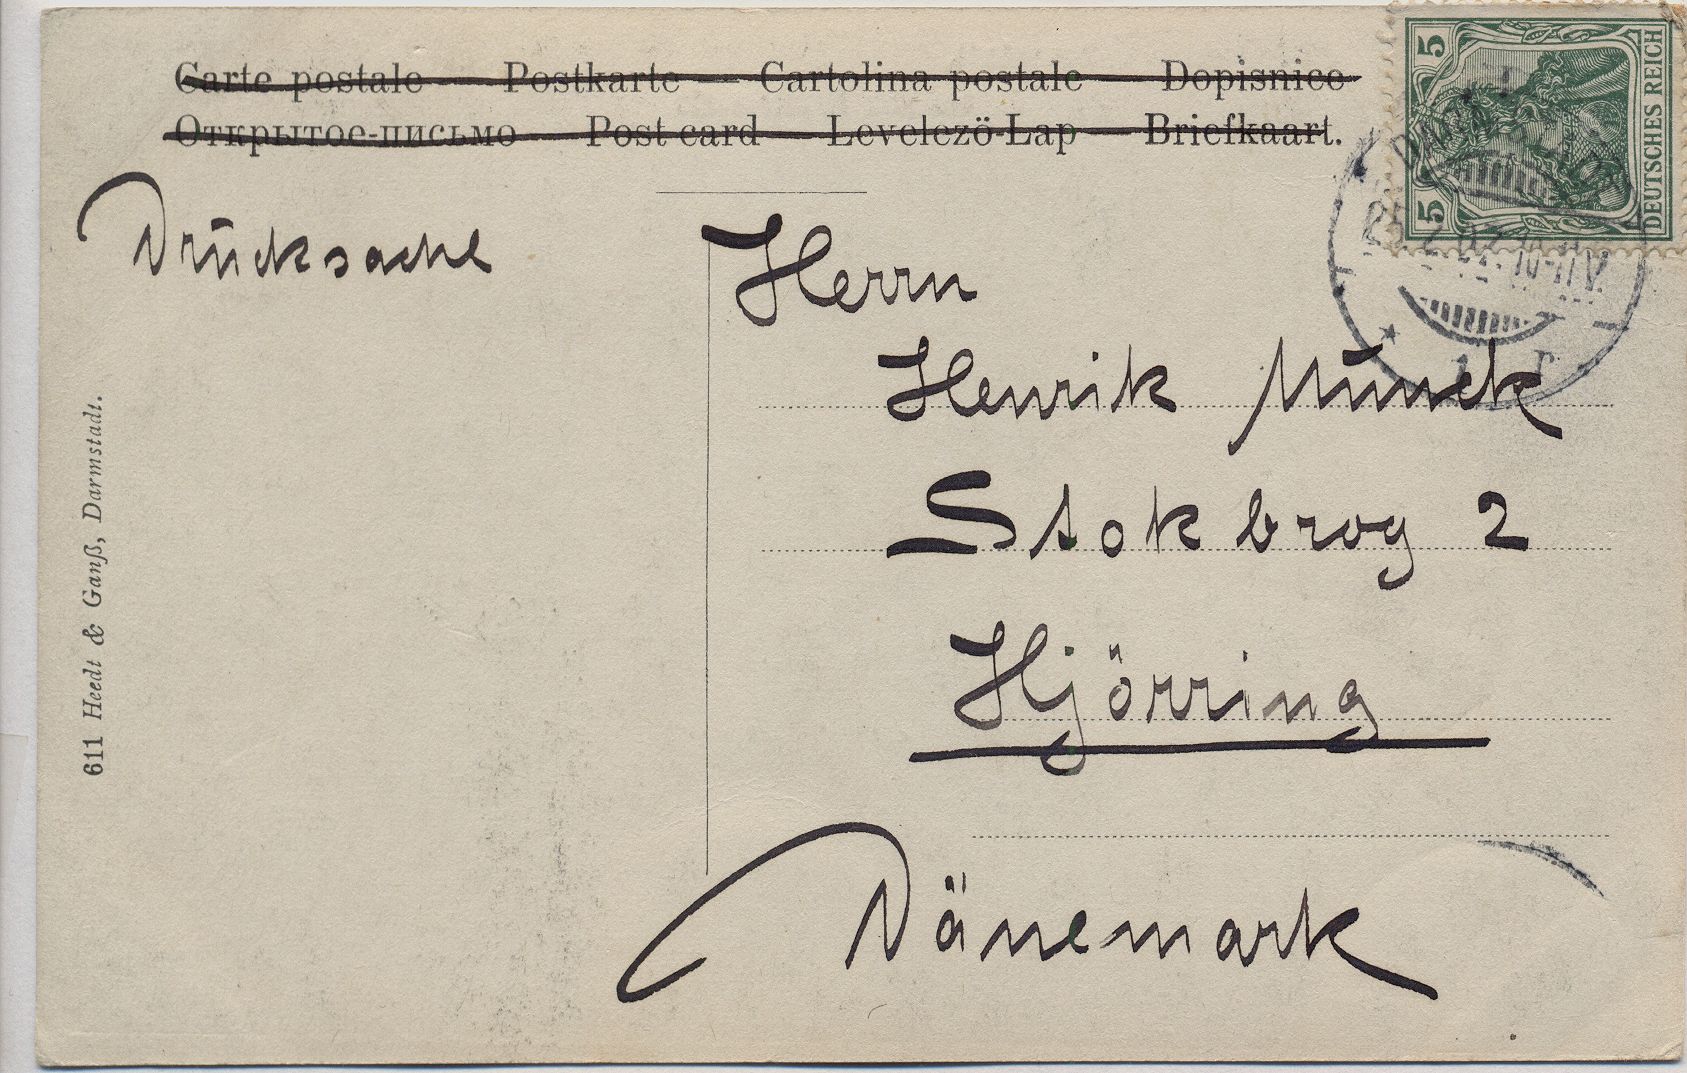 Carte postale — Postkarte — Cartolina postale — Dopisnice
Открытое-письмо — Post card — Levelezö-Lap — Briefkaart.
Drucksache
Herrn
Henrik Munck
Stokbrog 2
Hjörring
Dänemark
611 Heedt & Ganß, Darmstadt.
5
5
DEUTSCHES REICH